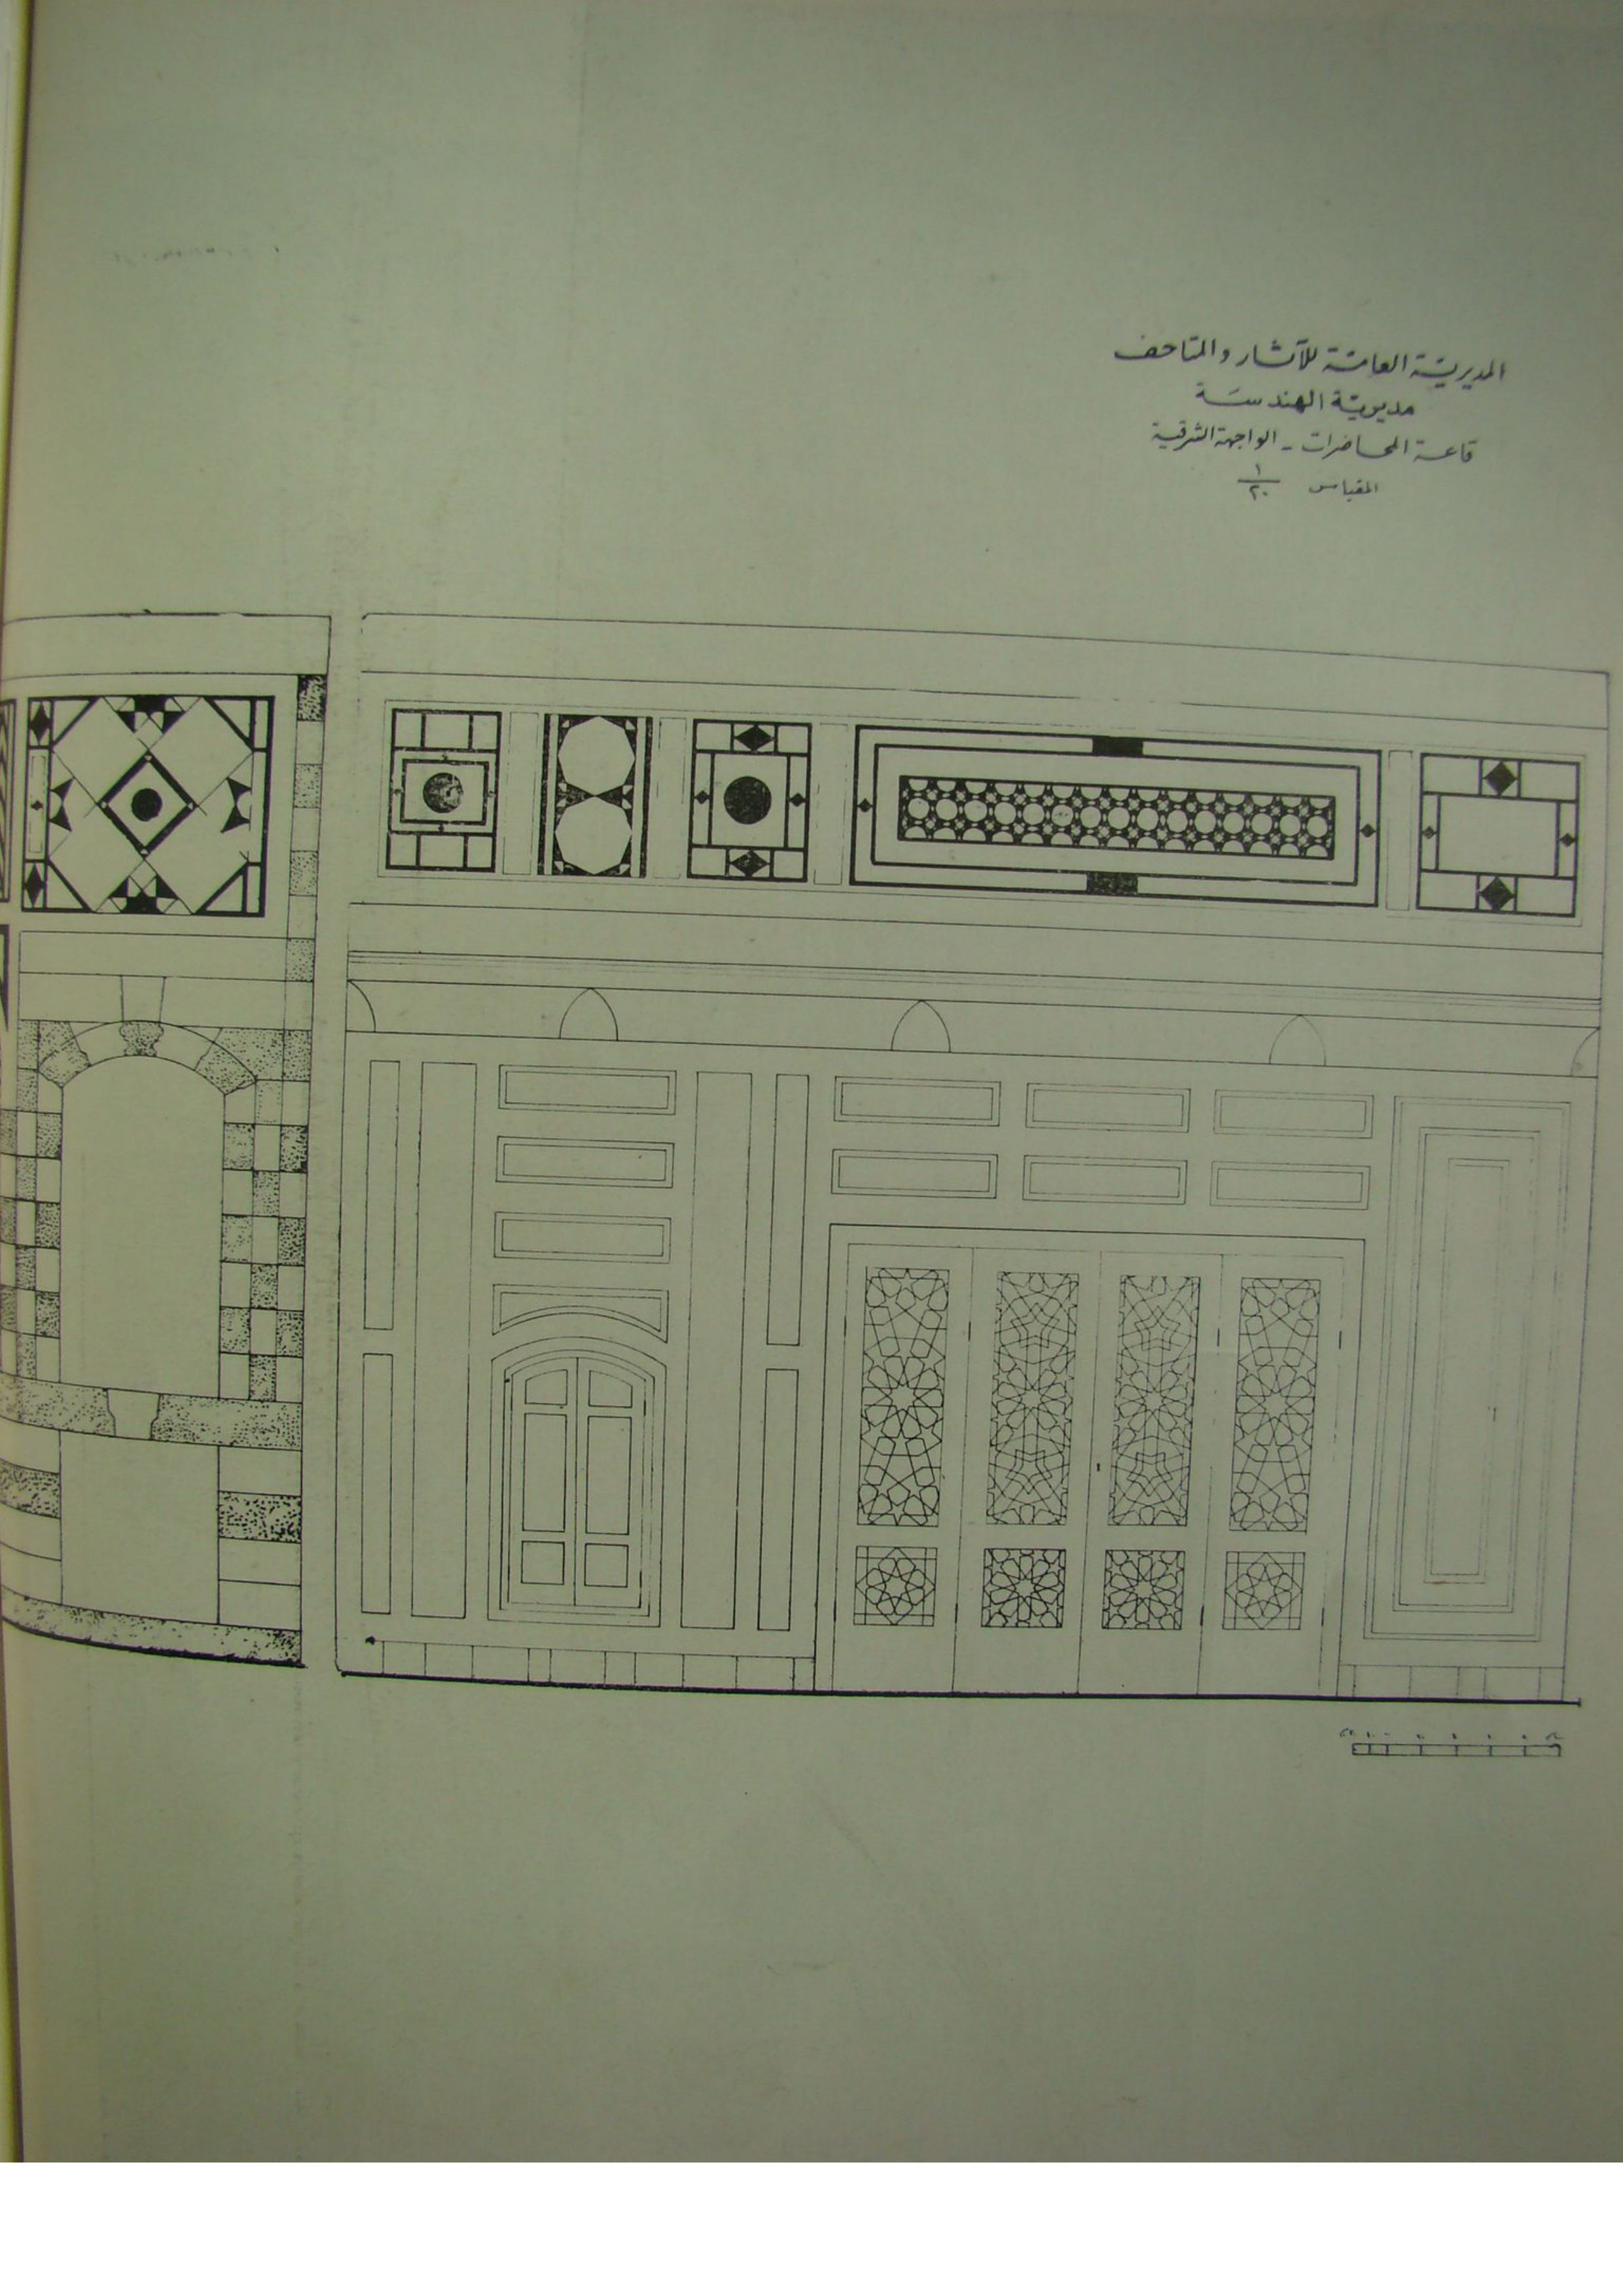 المديرية العامة للآثار والمتاحف
مديرية الهندسة
قاعة المحاضرات - الواجهة الشرقية
المقياس ١/٢٠